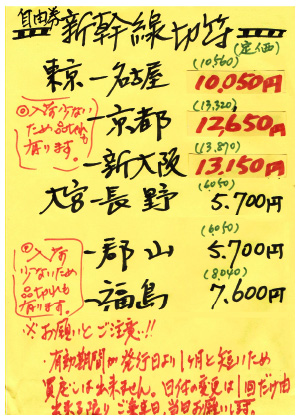 自由券
新幹線切符
(定価)
(10,560)
東京ー名古屋 10,050円
(13,320)
ー京都 12,650円
(13,870)
ー新大阪 13,150円
(6050)
大宮ー長野 5.700円
(6050)
ー郡山 5.700円
(8,040)
ー福島 7.600円
◎入荷少ない
ため品切れも
有ります。
◎入荷
少ないため
品切れも
有ります。
※お願いとご注意!!
・有効期間が発行日より1ヶ月と短いため
買戻しは出来ません。日付の変更は1回だけ由
出来る限りご乗車日、当日お願いします。